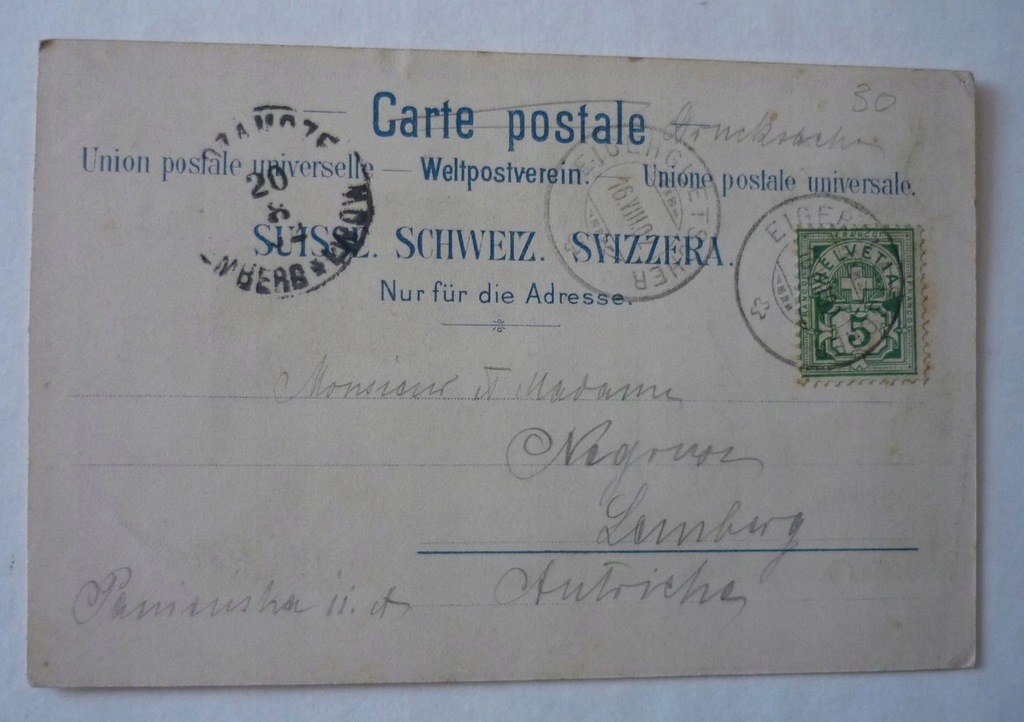 30
Carte postale
Drucksache
Union postale universelle — Weltpostverein. Unione postale universale.
SUISSE. SCHWEIZ. SVIZZERA.
Nur für die Adresse.
EIGERGLETSCHER
16 VIII
20
8
LEMBERG
LWÓW
HELVETIA
FRANCO
5
Monsieur et Madame
Lemberg
Autriche